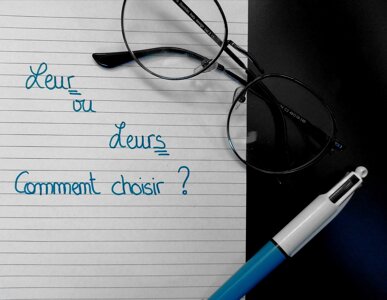 Leur
ou
Leurs
Comment choisir ?